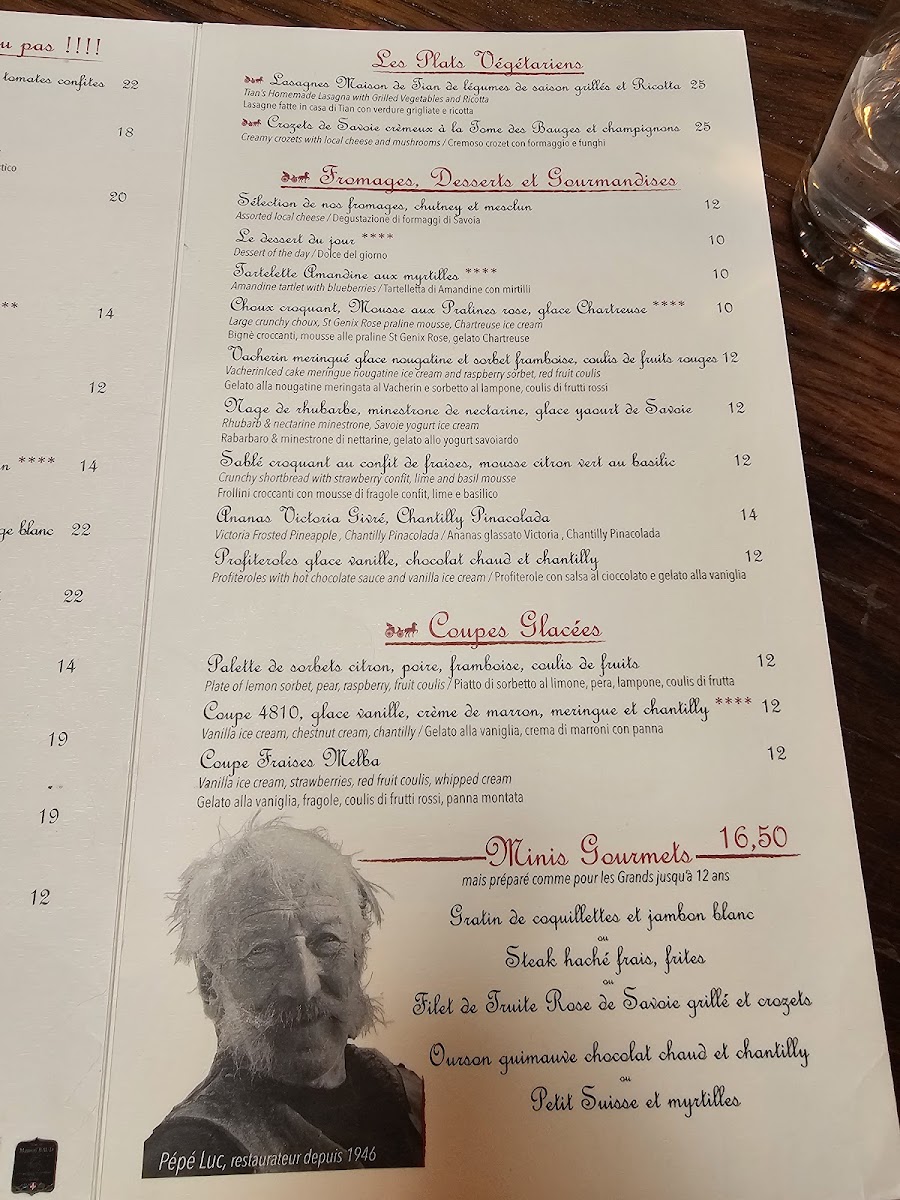 u pas !!!!
tomates confites 22
18
tico
20
** 14
12
n **** 14
ge blanc 22
22
14
19
19
12
Les Plats Végétariens
Lasagnes Maison de Tian de légumes de saison grillés et Ricotta 25
Tian's Homemade Lasagna with Grilled Vegetables and Ricotta
Lasagne fatte in casa di Tian con verdure grigliate e ricotta
Crozets de Savoie crèmeux à la Tome des Bauges et champignons 25
Creamy crozets with local cheese and mushrooms / Cremoso crozet con formaggio e funghi
Fromages, Desserts et Gourmandises
Sélection de nos fromages, chutney et mesclun 12
Assorted local cheese / Degustazione di formaggi di Savoia
Le dessert du jour **** 10
Dessert of the day / Dolce del giorno
Tartelette Amandine aux myrtilles **** 10
Amandine tartlet with blueberries / Tartelletta di Amandine con mirtilli
Choux croquant, Mousse aux Pralines rose, glace Chartreuse **** 10
Large crunchy choux, St Genix Rose praline mousse, Chartreuse ice cream
Bignè croccanti, mousse alle praline St Genix Rose, gelato Chartreuse
Vacherin meringué glace nougatine et sorbet framboise, coulis de fruits rouges 12
VacherinIced cake meringue nougatine ice cream and raspberry sorbet, red fruit coulis
Gelato alla nougatine meringata al Vacherin e sorbetto al lampone, coulis di frutti rossi
Nage de rhubarbe, minestrone de nectarine, glace yaourt de Savoie 12
Rhubarb & nectarine minestrone, Savoie yogurt ice cream
Rabarbaro & minestrone di nettarine, gelato allo yogurt savoiardo
Sablé croquant au confit de fraises, mousse citron vert au basilic 12
Crunchy shortbread with strawberry confit, lime and basil mousse
Frollini croccanti con mousse di fragole confit, lime e basilico
Ananas Victoria Givré, Chantilly Pinacolada 14
Victoria Frosted Pineapple , Chantilly Pinacolada / Ananas glassato Victoria , Chantilly Pinacolada
Profiteroles glace vanille, chocolat chaud et chantilly 12
Profiteroles with hot chocolate sauce and vanilla ice cream / Profiterole con salsa al cioccolato e gelato alla vaniglia
Coupes Glacées
Palette de sorbets citron, poire, framboise, coulis de fruits 12
Plate of lemon sorbet, pear, raspberry, fruit coulis / Piatto di sorbetto al limone, pera, lampone, coulis di frutta
Coupe 4810, glace vanille, crème de marron, meringue et chantilly **** 12
Vanilla ice cream, chestnut cream, chantilly / Gelato alla vaniglia, crema di marroni con panna
Coupe Fraises Melba 12
Vanilla ice cream, strawberries, red fruit coulis, whipped cream
Gelato alla vaniglia, fragole, coulis di frutti rossi, panna montata
Minis Gourmets 16,50
mais préparé comme pour les Grands jusqu'à 12 ans
Gratin de coquillettes et jambon blanc
ou
Steak haché frais, frites
ou
Filet de Truite Rose de Savoie grillé et crozets
Ourson guimauve chocolat chaud et chantilly
ou
Petit Suisse et myrtilles
Pépé Luc, restaurateur depuis 1946